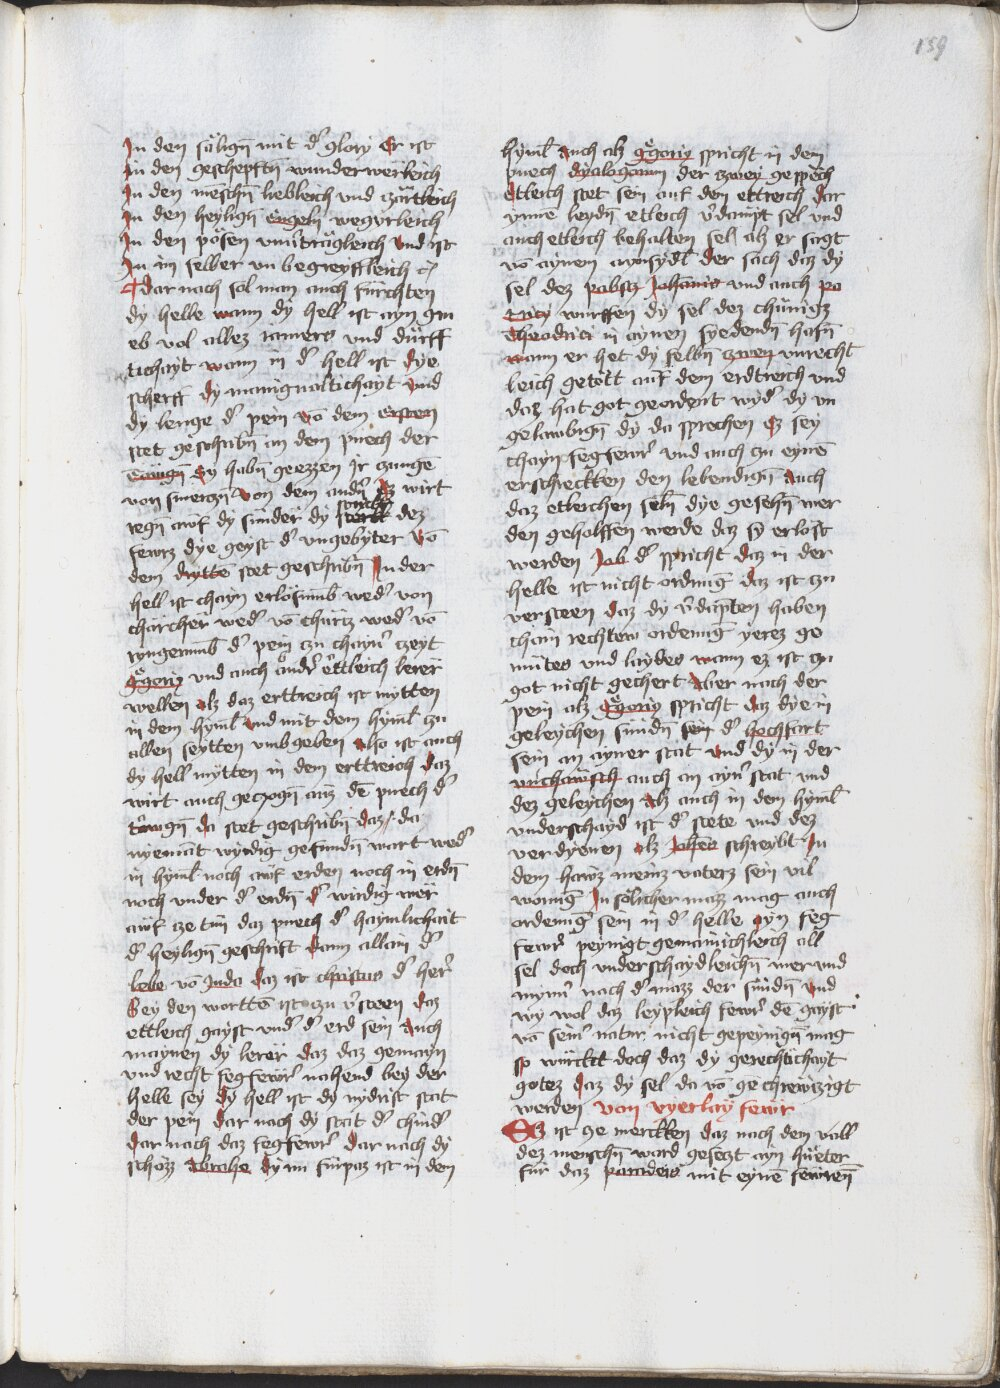 159
In den sälign̄ mit d' glory Er ist
In den geschepftn̄ wunderwerleich
In den menschn̄ liebleich und czärtleich
In den heylign̄ engeln wegyrleich
In den pösen unu'trägleich Und ist
In im selber un begreyffleich
dar nach sol man auch fürchten
dy helle wann dy hell ist ayn gru
eb vol allez iamers und dürff
tichayt wann in d' hell ist dye
scherff dy manignaltichayt und
dy lenge d' pein Vō dem ersten
stet geschribn̄ an dem puech der
Sy habn̄ geezzen Ir czunge
von smerczn̄ Von dem andn̄ Ez wirt
regn̄ auf dy sünder dy dez
fewrz dye geyst d' ungebyter Vō
dem drytte stet geschribn̄ In der
hell ist chayn erlösumb wed' von
chärcher wed' vō chürtz wed' vō
ryngerumb d' pein czu chayn' czeyt
Gregoriꝫ und auch ander ettleich lerer
wellen Alz daz erttreich ist mytten
in dem hyml' Und mit dem hyml' czu
allen seytten umbgeben Also ist auch
dy hell mytten in dem erttreich daz
wirt auch geczogn̄ auz de puech d'
tawgn̄ da stet geschribn̄ daz da
nyemāt wirdig gefundn̄ wart wed'
in hyml' noch auf erden noch in erdn̄
noch under d' erdn̄ d' wirdig wer
auf ze tūn daz puech d' haymlichait
d' heylign̄ geschrift Dann allain d'
lebe vō Juda daz ist christus d' her'
Bey den wortte ist czu v'steen daz
ettleich gayst und' d' erd sein Auch
maynen dy lerer daz daz gemayn
und recht fegfewr' nahend bey der
helle sey Dy hell ist dy nydrist stat
der pein Dar nach dy stat d' chind'
Dar nach daz fegfewr' Dar nach dy
schozz Abrahe Dy nu fürpaz ist in den
hyml' Auch alz Gregoriꝫ spricht in dem
puech dyalogorum der zwey gespech
Etleich stet sein auf dem ettreich dar
ynne leydn̄ etleich v'dampt sel und
auch etleich behalten sel alz er sagt
vō aynem aynsydl' Der sach daz dy
sel dez pabstz Johānis und auch pa
tricy wurffen dy sel dez chünigz
Theodrici in aynen syedendn̄ hafn̄
Wann er het dy selbn̄ zwen unrecht
leich getött auf dem erdtreich und
daz hat got geordent wyd' dy un
gelawbign̄ dy da sprechen Ez sey
chayn fegfewr' und auch czu eyne
erschreckten den lebendign̄ Auch
daz etleichen seln̄ dye gesehn̄ wer
den geholffen werde daz sy erlost
werden Job d' spricht daz in der
helle ist nicht ordnūg daz ist czu
versteen daz dy v'dāpten haben
chain rechtew ordenūg yrez ge
mütes und laydes wann ez ist czu
got nicht gechert Aber nach der
pein alz Gregoriꝫ spricht daz dye in
geleychen sündn̄ sein d' hochfart
sein an ayner stat Und dy in der
unchawsch auch an ayn' stat und
dez geleychen Alz auch in dem hyml'
underschayd ist d' stete und dez
verdyenen Alz Johēs schreybt In
dem hawz meinz vaterz sein vil
wonūg In sölicher mazz mag auch
ordenūg sein in d' helle Ayn feg
fewr' peynigt gemainichleich all
sel doch underschaydleichn̄ mer und
mynn' nach d' mazz der sündn̄ Und
wy wol daz leypleich fewr' de gayst
vō sein' natur nicht gepeynign̄ mag
so würckt doch daz dy gerechtichayt
gotez daz dy sel da vō gechrewczigt
werden Von vyerlay fewr
Ez ist ze mercken daz nach dem vall
dez menschn̄ ward gesetzt ayn hueter
für daz paradeis mit eyne fewren̄